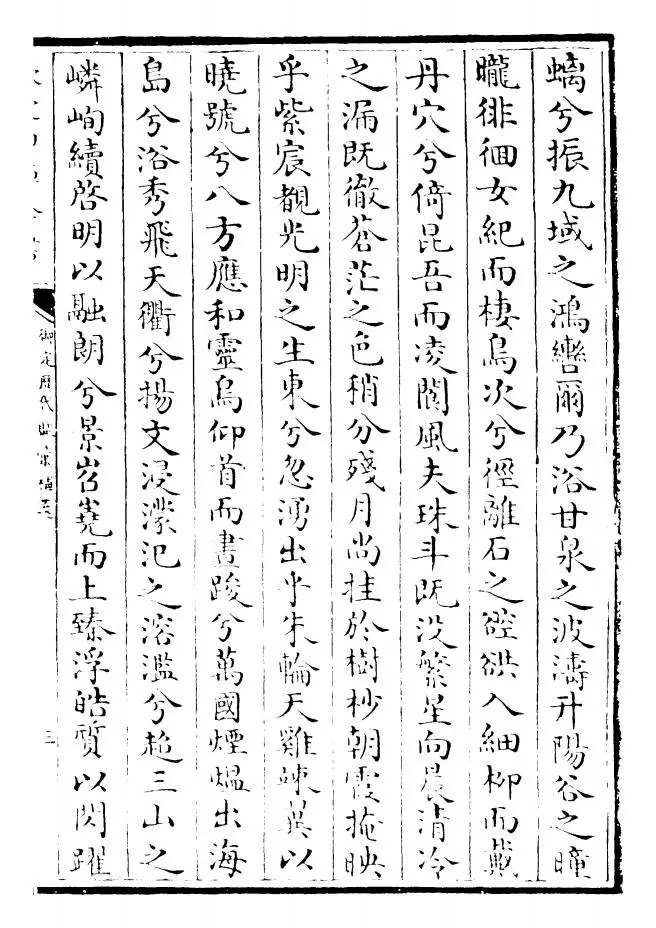 螭兮振九域之鴻轡爾乃浴甘泉之波濤升陽谷之曈
曨徘徊女紀而棲烏次兮徑離石之硿谼入細柳而戴
丹穴兮倚昆吾而凌閬風夫珠斗既没繁星向晨清泠
之漏既徹蒼茫之色稍分殘月尚挂於樹杪朝霞掩映
乎紫宸覩光明之生東兮忽湧出乎朱輪天雞竦翼以
曉號兮八方應和靈烏仰首而晝踆兮萬國煙熅出海
島兮浴秀飛天衢兮揚文浸濛汜之溶濫兮超三山之
嶙峋續啓明以融朗兮景岧嶤而上臻浮皓質以閃躍
御定歷代賦彚補遺
三